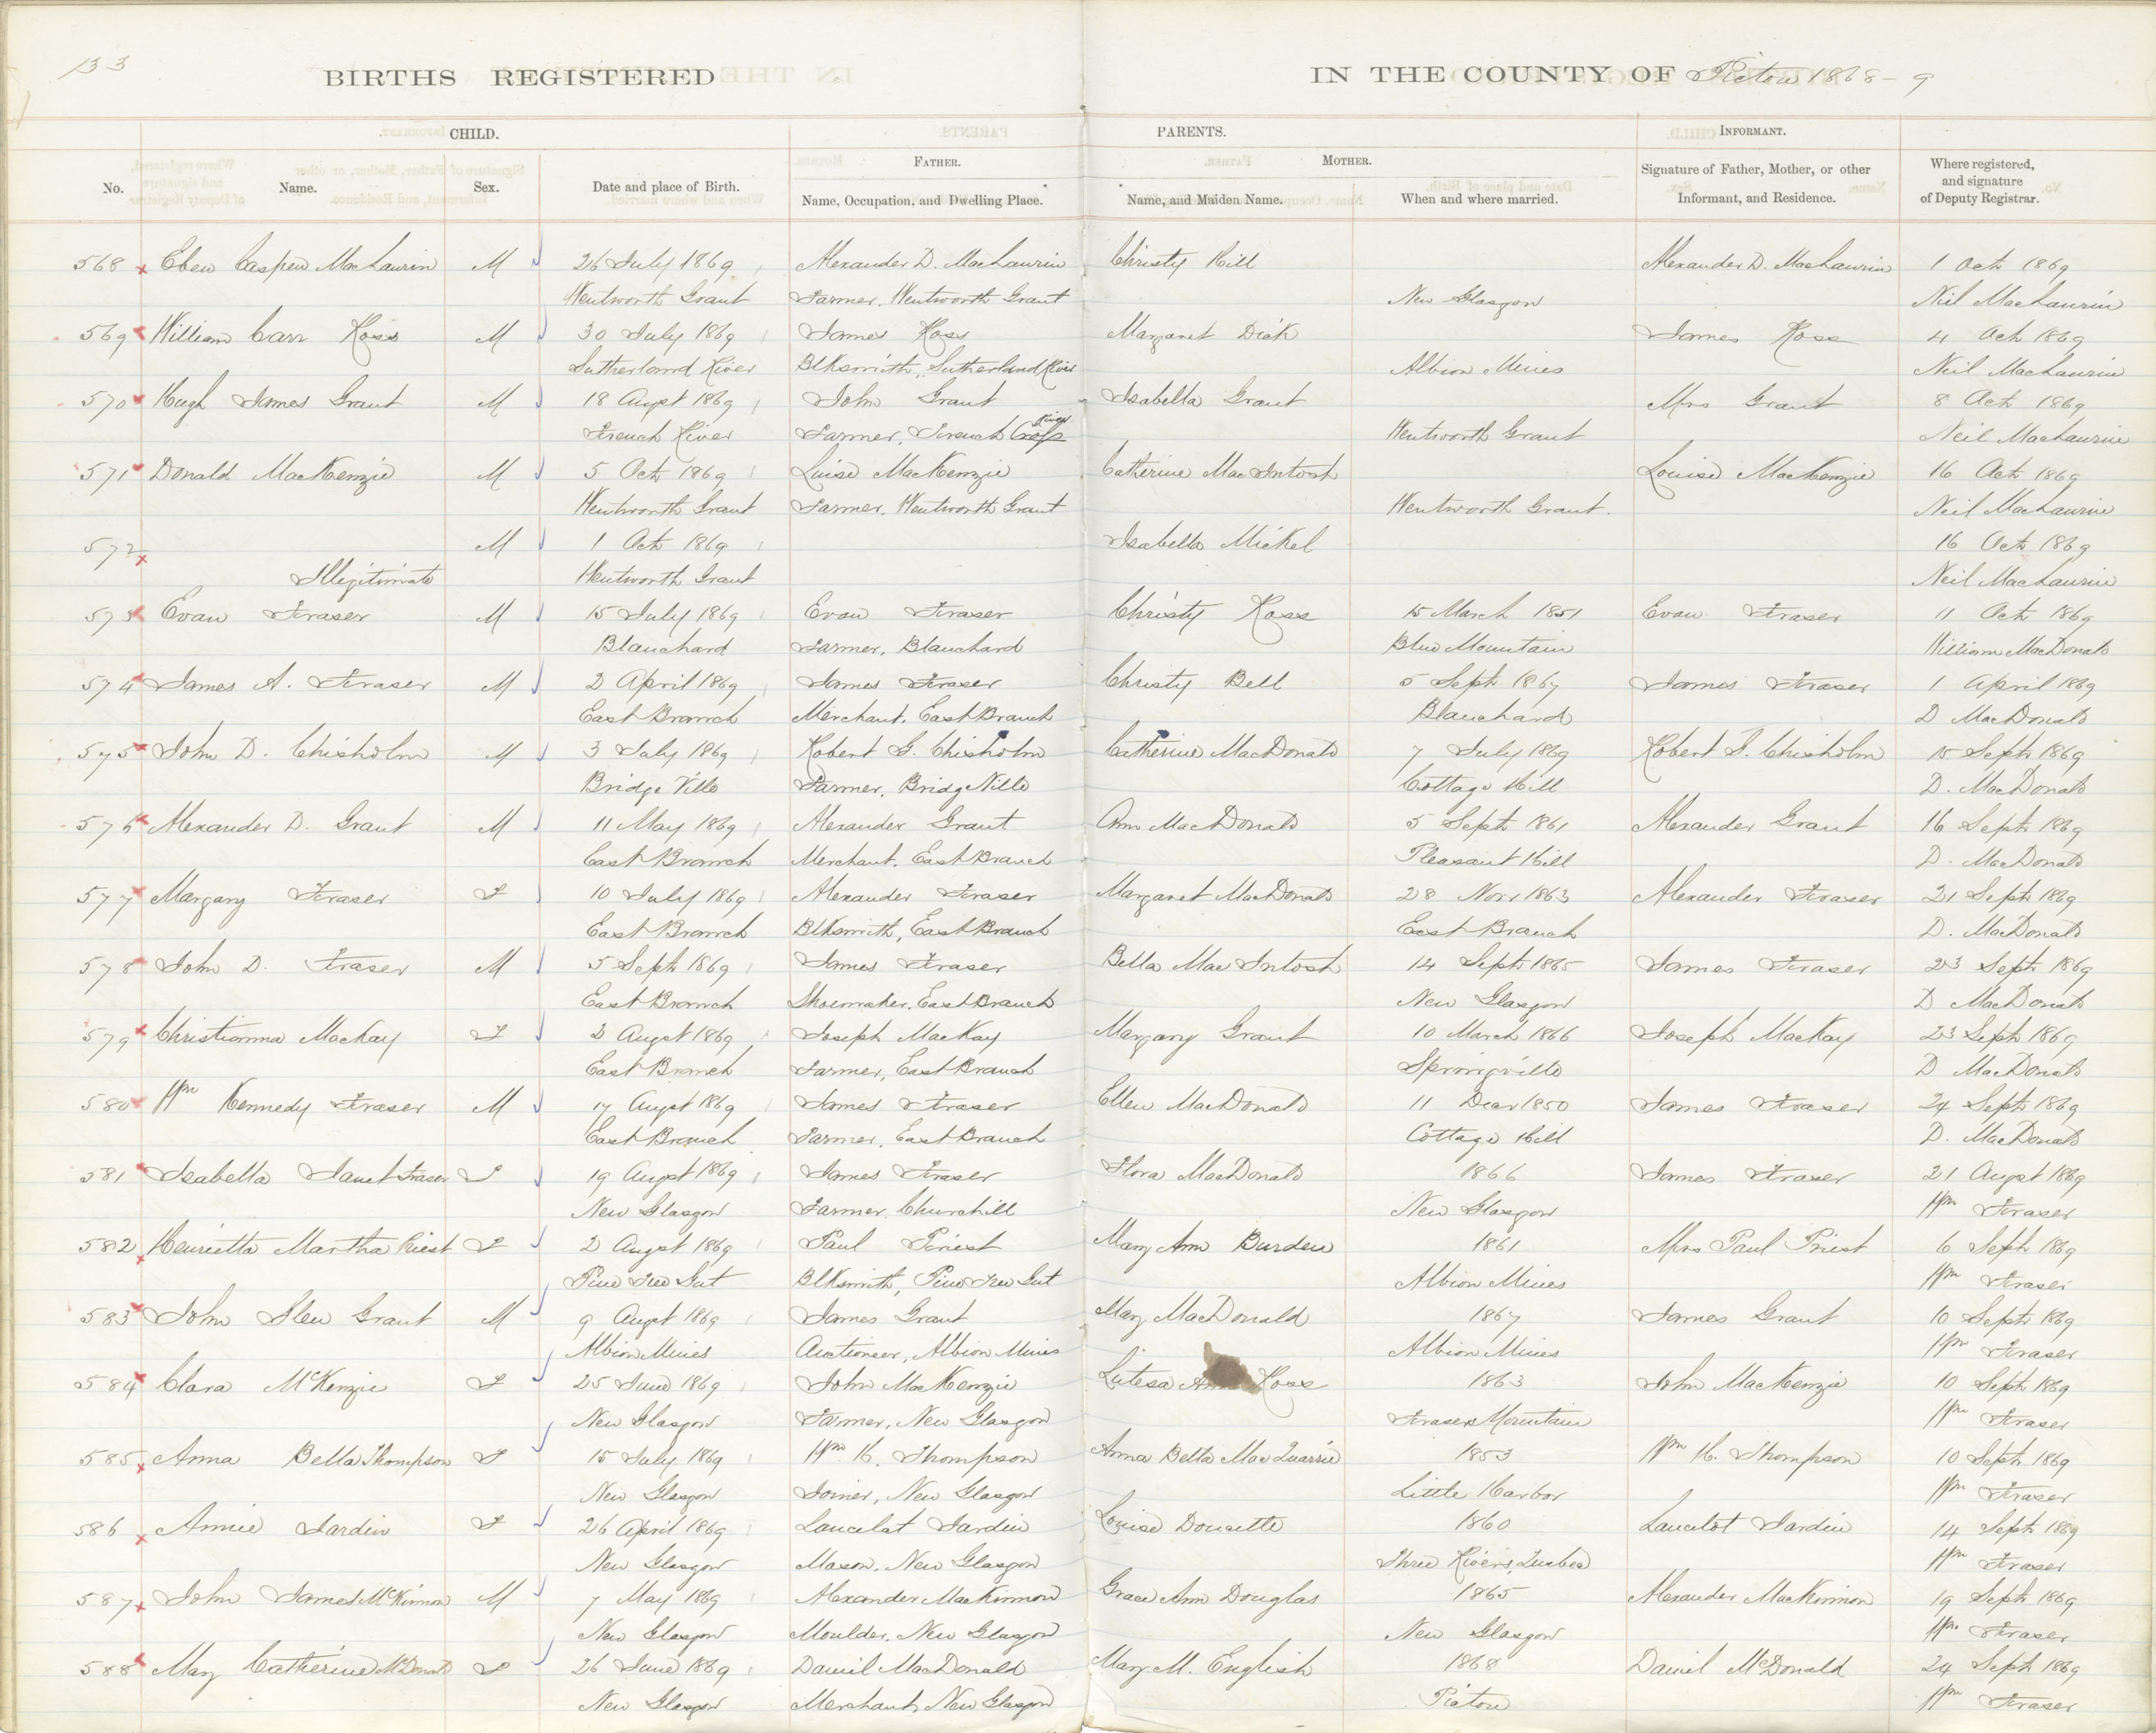 133
BIRTHS REGISTERED IN THE COUNTY OF Pictou 1868-9
CHILD. PARENTS. INFORMANT.
FATHER. MOTHER.
No. Name. Sex. Date and place of Birth. Name, Occupation, and Dwelling Place. Name, and Maiden Name. When and where married. Signature of Father, Mother, or other Informant, and Residence. Where registered, and signature of Deputy Registrar.
568 Eben Caspen MacLaurin M 26 July 1869 Alexander D. MacLaurin Christy Hill Alexander D. MacLaurin 1 Oct 1869
Wentworth Grant Farmer, Wentworth Grant New Glasgow Neil MacLaurin
569 William Carr Ross M 30 July 1869 James Ross Margaret Dick James Ross 4 Oct 1869
Sutherland River Blksmith, Sutherland River Albion Mines Neil MacLaurin
570 Hugh James Grant M 18 Augst 1869 John Grant Isabella Grant Mrs Grant 8 Oct 1869
French River Farmer, French River Wentworth Grant Neil MacLaurin
571 Donald MacKenzie M 5 Oct 1869 Luise MacKenzie Catherine MacIntosh Louise MacKenzie 16 Oct 1869
Wentworth Grant Farmer, Wentworth Grant Wentworth Grant. Neil MacLaurin
572 M 1 Oct 1869 Isabella Mickel 16 Oct 1869
Illegitimate Wentworth Grant Neil MacLaurin
573 Evan Fraser M 15 July 1869 Evan Fraser Christy Ross 15 March 1851 Evan Fraser 11 Oct 1869
Blanchard Farmer, Blanchard Blue Mountain William MacDonald
574 James A. Fraser M 2 April 1869 James Fraser Christy Bell 5 Sept 1867 James Fraser 1 April 1869
East Branch Merchant, East Branch Blanchard D MacDonald
575 John D. Chisholm M 3 July 1869 Robert G. Chisholm Catherine MacDonald 7 July 1869 Robert G. Chisholm 15 Sept 1869
Bridge Ville Farmer, Bridge Ville Cottage Hill D. MacDonald
576 Alexander D. Grant M 11 May 1869 Alexander Grant Ann MacDonald 5 Sept 1861 Alexander Grant 16 Sept 1869
East Branch Merchant, East Branch Pleasant Hill D. MacDonald
577 Margary Fraser F 10 July 1869 Alexander Fraser Margaret MacDonald 28 Novr 1863 Alexander Fraser 21 Sept 1869
East Branch Blksmith, East Branch East Branch D. MacDonald
578 John D. Fraser M 5 Sept 1869 James Fraser Bella MacIntosh 14 Sept 1865 James Fraser 23 Sept 1869
East Branch Shoemaker, East Branch New Glasgow D MacDonald
579 Christianna MacKay F 2 Augst 1869 Joseph MacKay Margary Grant 10 March 1866 Joseph MacKay 23 Sept 1869
East Branch Farmer, East Branch Springville D MacDonald
580 Wm Kennedy Fraser M 17 Augst 1869 James Fraser Ellen MacDonald 11 Decr 1850 James Fraser 24 Sept 1869
East Branch Farmer, East Branch Cottage Hill D. MacDonald
581 Isabella Janet Fraser F 19 Augst 1869 James Fraser Flora MacDonald 1866 James Fraser 21 Augst 1869
New Glasgow Farmer, Churchill New Glasgow Wm Fraser
582 Henrietta Martha Priest F 2 Augst 1869 Paul Priest Mary Ann Burden 1861 Mrs Paul Priest 6 Sept 1869
Pine Tree Gut Blksmith, Pine Tree Gut Albion Mines Wm Fraser
583 John Glen Grant M 9 Augst 1869 James Grant Mary MacDonald 1867 James Grant 10 Sept 1869
Albion Mines Auctioneer, Albion Mines Albion Mines Wm Fraser
584 Clara McKenzie F 25 June 1869 John MacKenzie Lutesa Ann Ross 1863 John MacKenzie 10 Sept 1869
New Glasgow Farmer, New Glasgow Frasers Mountain Wm Fraser
585 Anna Bella Thompson F 15 July 1869 Wm H. Thompson Anna Bella MacQuarrie 1853 Wm H. Thompson 10 Sept 1869
New Glasgow Joiner, New Glasgow Little Harbor Wm Fraser
586 Annie Jardin F 26 April 1869 Lancelat Jardin Louise Doucette 1860 Lancelot Jardin 14 Sept 1869
New Glasgow Mason, New Glasgow Three Rivers, Quebec Wm Fraser
587 John James McKinnon M 7 May 1869 Alexander MacKinnon Grace Ann Douglas 1865 Alexander MacKinnon 19 Sept 1869
New Glasgow Moulder, New Glasgow New Glasgow Wm. Fraser
588 Mary Catherine McDonald F 26 June 1869 Daniel MacDonald Mary M. English 1868 Daniel McDonald 24 Sept 1869
New Glasgow Merchant, New Glasgow Pictou Wm Fraser